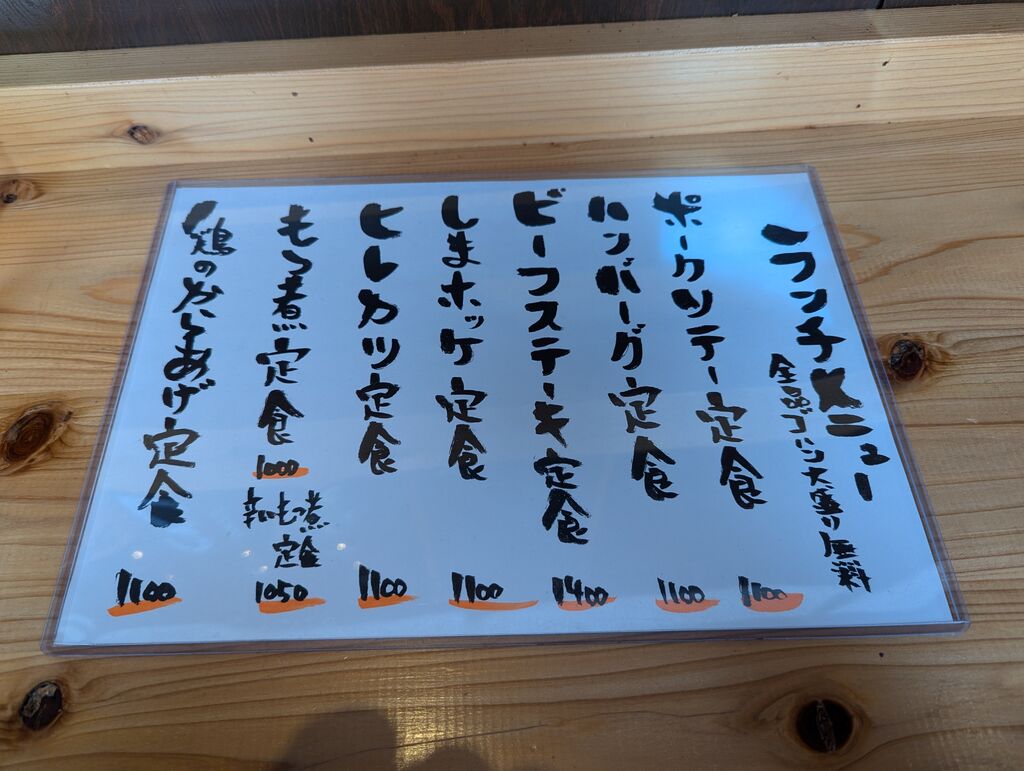 ランチメニュー
全品ゴハン大盛り無料
ポークソテー定食
1100
ハンバーグ定食
1100
ビーフステーキ定食
1400
しまホッケ定食
1100
ヒレカツ定食
1100
もつ煮定食
1000
辛いもつ煮
定食
1050
鶏のからあげ定食
1100